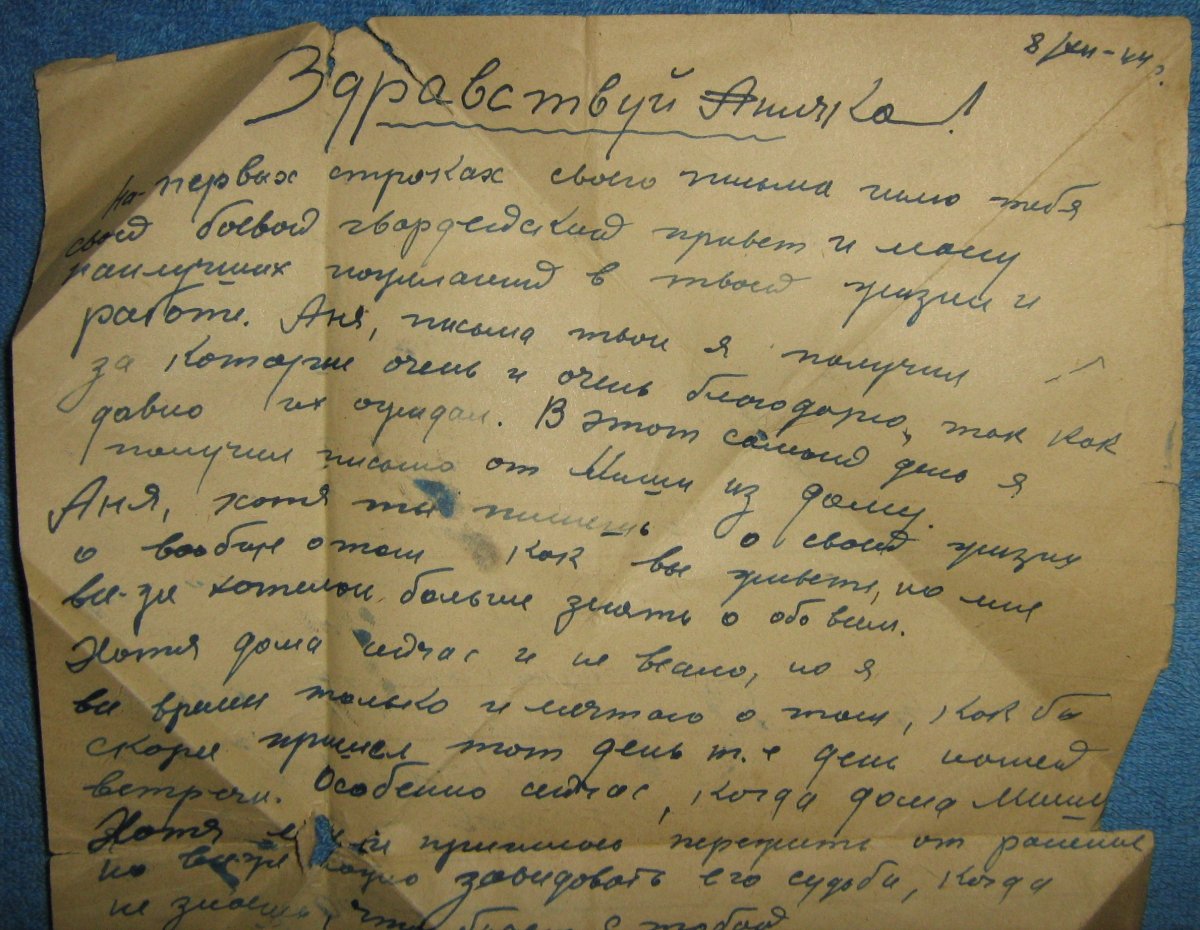 8/XII-44 г.
Здравствуй Аничка!
На первых строках своего письма шлю тебя
свой боевой гвардейский привет и массу
наилучших пожеланий в твоей жизни и
работе. Аня, письма твои я получил
за которые очень и очень благодарю, так как
давно их ожидал. В этот самый день я
получил письмо от Миши из дому.
Аня, хотя ты пишешь о своей жизни
и вообще о том как вы живете, но мне
все-же хотелось больше знать о обо всем.
Хотя дома сейчас и не весело, но я
все время только и мечтаю о том, как бы
скорее пришел тот день т.е день нашей
встречи. Особенно сейчас, когда дома Миша
Хотя и пришлось пережить от ранения
но все-же можно завидовать его судьбе, когда
не знаешь, что будет с тобой